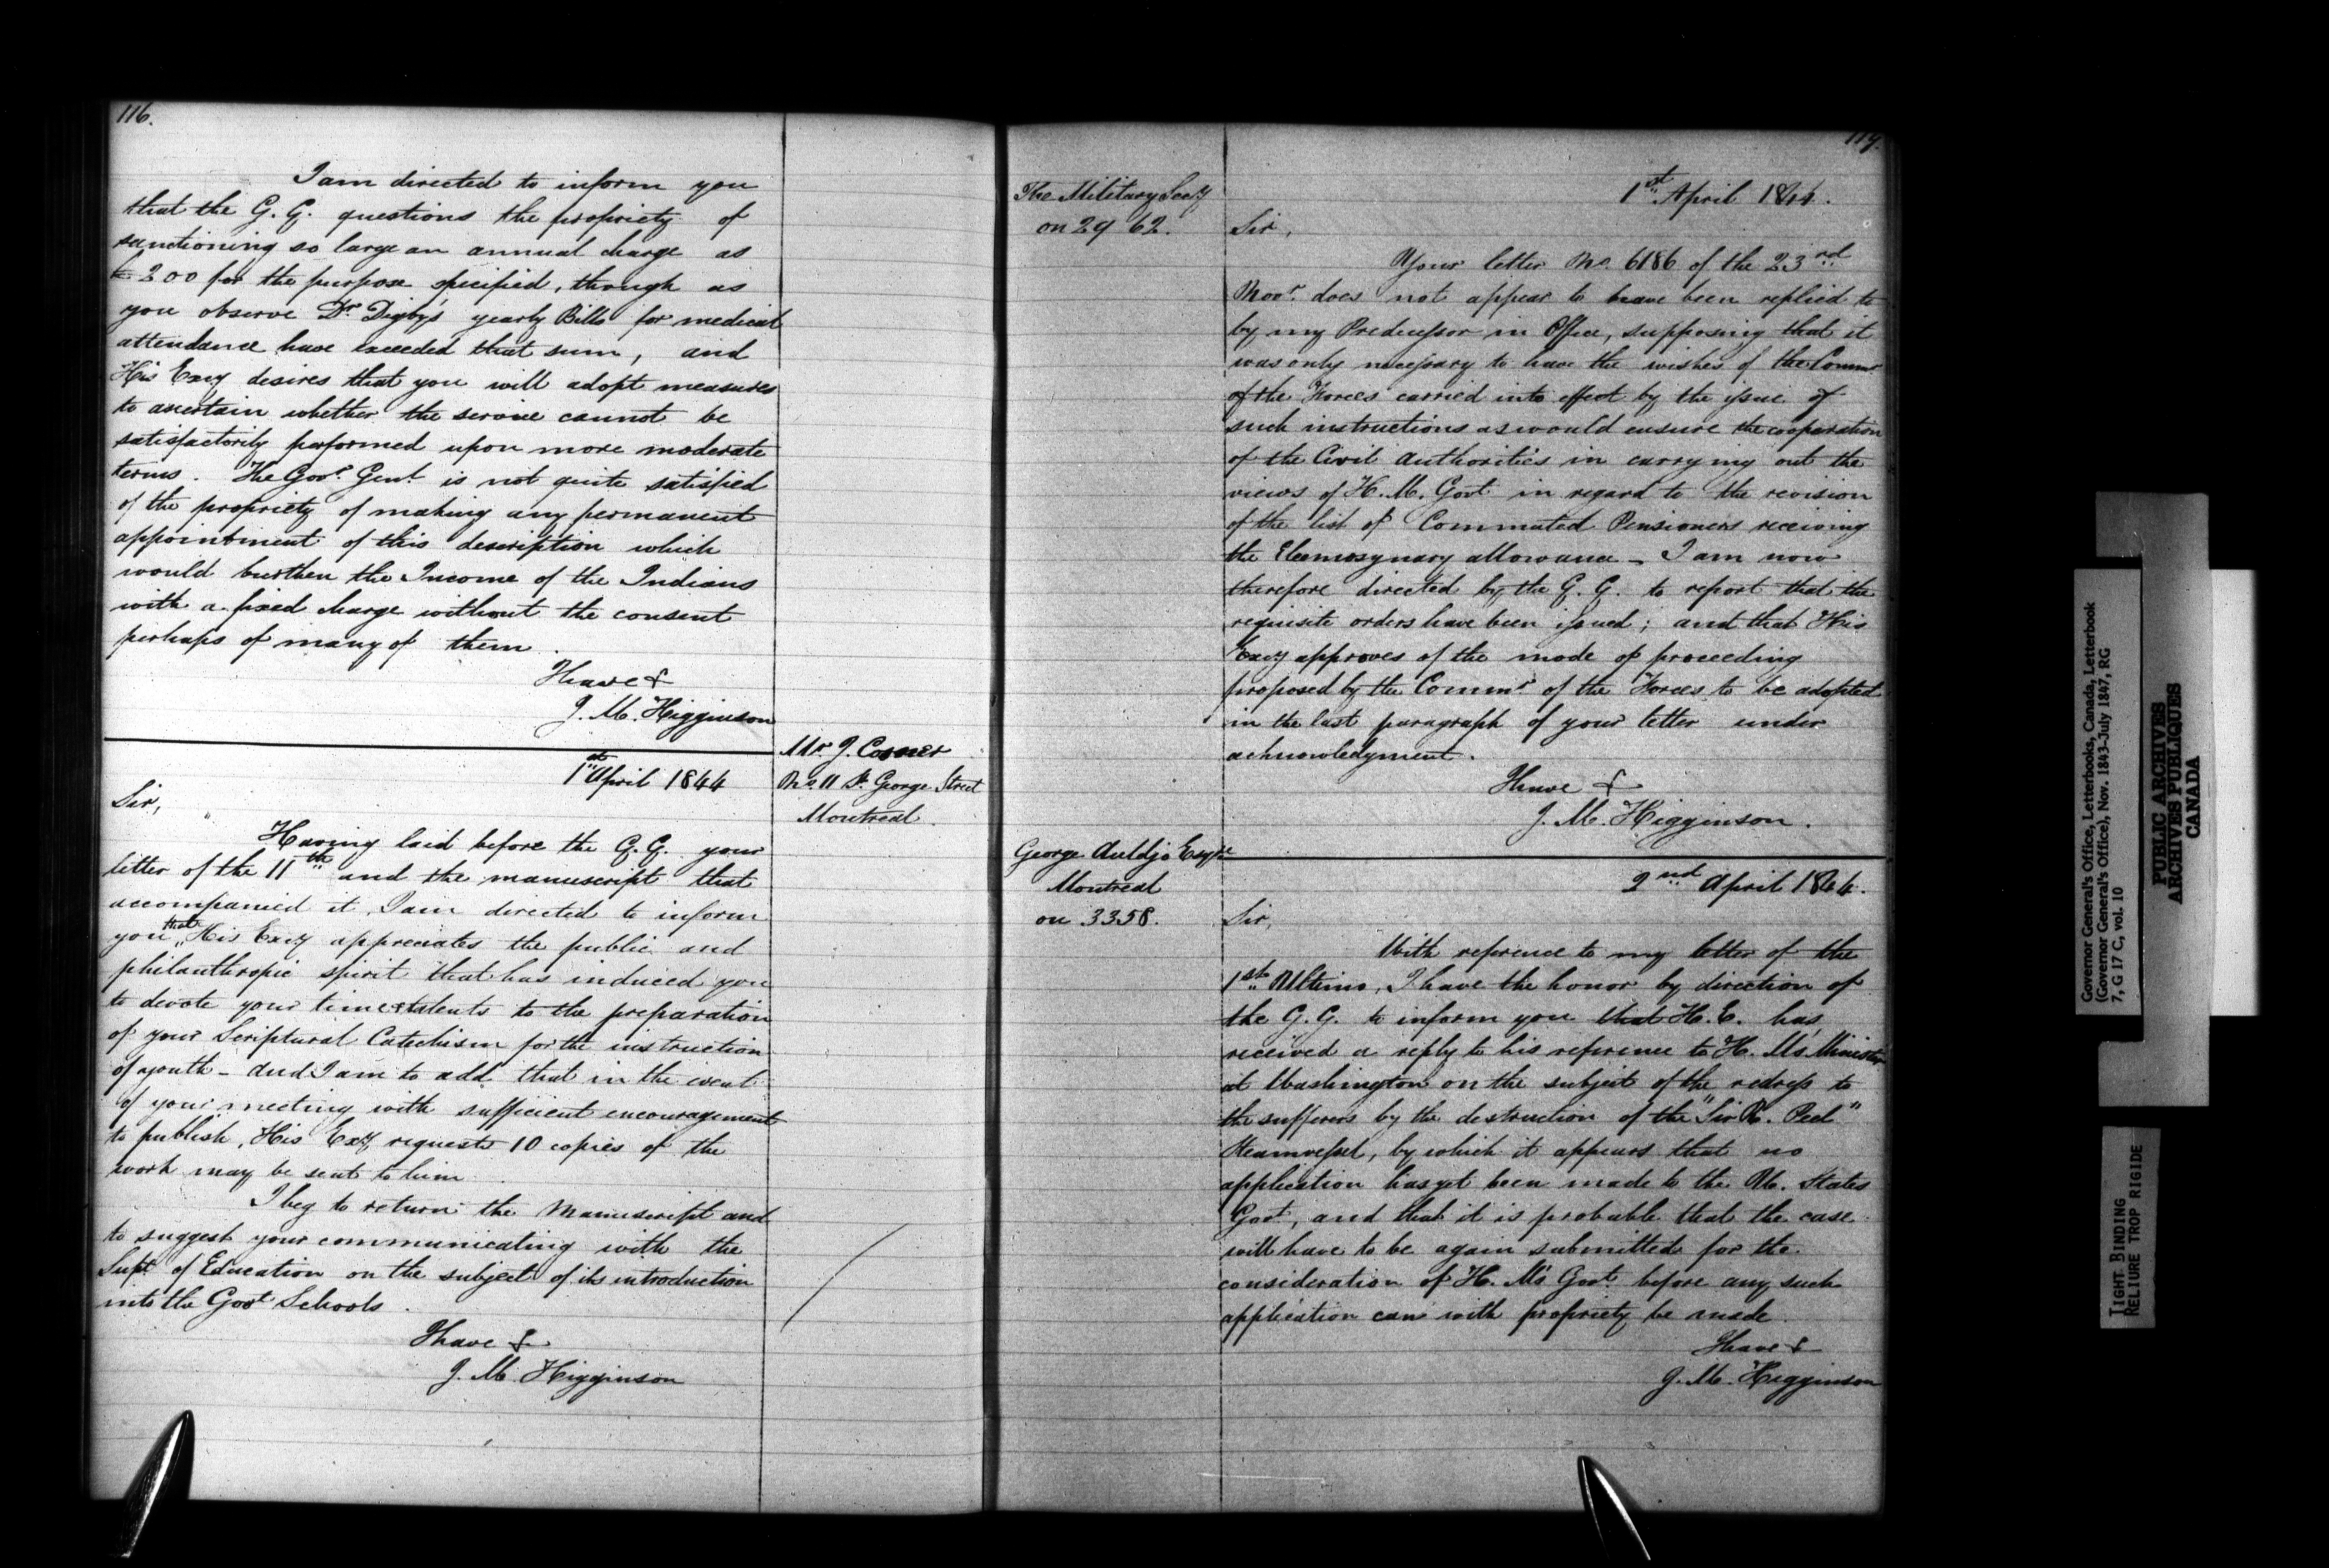 116.
I am directed to inform you
that the G. G. questions the propriety of
sanctioning so large an annual charge as
£200 for the purpose specified, though as
you observe Dr Digby's yearly Bills for medical
attendance have exceeded that sum, and
His Exey desires that you will adopt measures
to ascertain whether the service cannot be
satisfactorily performed upon more moderate
terms. The Govr Genl is not quite satisfied
of the propriety of making any permanent
appointment of this description which
would burthen the Income of the Indians
with a fixed charge without the consent
perhaps of many of them.
I have &
J. M. Higginson
Mr J. Cosner
No. 11 St. George Street
Montreal.
1st April 1844
Sir,
Having laid before the G. G. your
letter of the 11th and the manuscript that
accompanied it, I am directed to inform
you that His Exey appreciates the public and
philanthropic spirit that has induced you
to devote your time & talents to the preparation
of your Scriptural Catechism for the instruction
of youth - And I am to add that in the event
of your meeting with sufficient encouragement
to publish, His Exey requests 10 copies of the
work may be sent to him
I beg to return the Manuscript and
to suggest your communicating with the
Supt of Education on the subject of its introduction
into the Govt Schools.
I have &
J. M. Higginson
117.
The Military Secy
on 2962.
1st April 1844.
Sir,
Your letter No. 6186 of the 23rd
Novr. does not appear to have been replied to
by my Predecessor in Office, supposing that it
was only necessary to have the wishes of the Commr
of the Forces carried into effect by the issue of
such instructions as would ensure the cooperation
of the Civil Authorities in carrying out the
views of H. M. Govt in regard to the revision
of the list of Commuted Pensioners receiving
the Eleemosynary allowance - I am now
therefore directed by the G. G. to report that the
requisite orders have been issued; and that His
Exey approves of the mode of proceeding
proposed by the Commr of the Forces to be adopted
in the last paragraph of your letter under
acknowledgment.
I have &
J. M. Higginson.
George Auldjo Esqre
Montreal
on 3358.
2nd April 1844.
Sir,
With reference to my letter of the
1st Ultimo, I have the honor by direction of
the G. G. to inform you that H. E. has
received a reply to his reference to H. M's Minister
at Washington on the subject of the redress to
the sufferers by the destruction of the "Sir R. Peel"
Steamvessel, by which it appears that no
application has yet been made to the U. States
Govt, and that it is probable that the case
will have to be again submitted for the
consideration of H. M's Govt before any such
application can with propriety be made.
I have &
J. M. Higginson
Governor General's Office, Letterbooks, Canada, Letterbook
(Governor General's Office), Nov. 1843-July 1847, RG
7, G 17 C, vol. 10
PUBLIC ARCHIVES
ARCHIVES PUBLIQUES
CANADA
TIGHT BINDING
RELIURE TROP RIGIDE